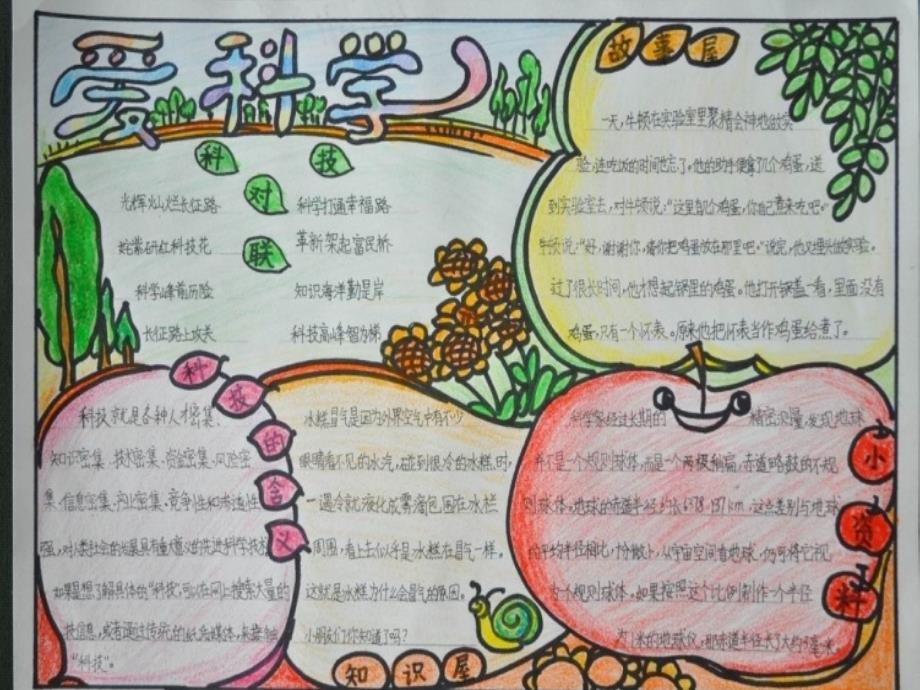 爱科学
科技对联
光辉灿烂长征路 科学打通幸福路
姹紫嫣红科技花 革新架起富民桥
科学峰前历险 知识海洋勤是岸
长征路上攻关 科技高峰智为梯
故事屋
一天,牛顿在实验室里聚精会神地做实
验,连吃饭的时间也忘了。他的助手便拿了几个鸡蛋,送
到实验室去,对牛顿说:“这里有几个鸡蛋,你自己煮来吃吧。”
牛顿说:“好,谢谢你,请你把鸡蛋放在那里吧。”说完,他又埋头做实验。
过了很长时间,他才想起锅里的鸡蛋。他打开锅盖一看,里面没有
鸡蛋,只有一个怀表。原来他把怀表当作鸡蛋给煮了。
科技的含义
科技,就是各种人才密集、
知识密集、技术密集、资金密集、风险密
集、信息密集、产业密集、竞争性和渗透性
强,对人类社会的发展具有重大意义的先进科学技术
如果是想了解具体的“科技”,可以在网上搜索大量的
技信息,或者通过传统的纸质媒体,来靠
“科技”。
水糕冒气是因为外界空气中有不少
眼睛看不见的水汽,碰到很冷的水糕时,
一遇冷就液化成雾滴包围在水栏
周围,看上去似乎是水糕在冒气一样。
这就是水糕为什么会冒气的原因。
小朋友们你知道了吗?
知识屋
科学家经过长期的精密测量,发现地球
并不是一个规则球体,而是一个两极稍扁,赤道略鼓的不规
则球体。地球的赤道半径约长6378.137km,这点差别与地球
的平均半径相比,十分微小,从宇宙空间看地球,仍可将它视
为个规则球体。如果按照这个比例制作一个半径
为1米的地球仪,那赤道半径长了大约 毫米
小资料